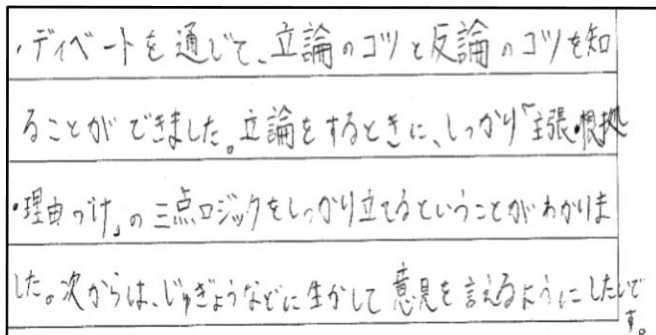 ・ディベートを通じて、立論のコツと反論のコツを知
ることができました。立論をするときに、しっかり「主張・根拠
・理由づけ」の三点ロジックをしっかり立てるということがわかりま
した。次からは、じゅぎょうなどに生かして意見を言えるようにしたいで
す。